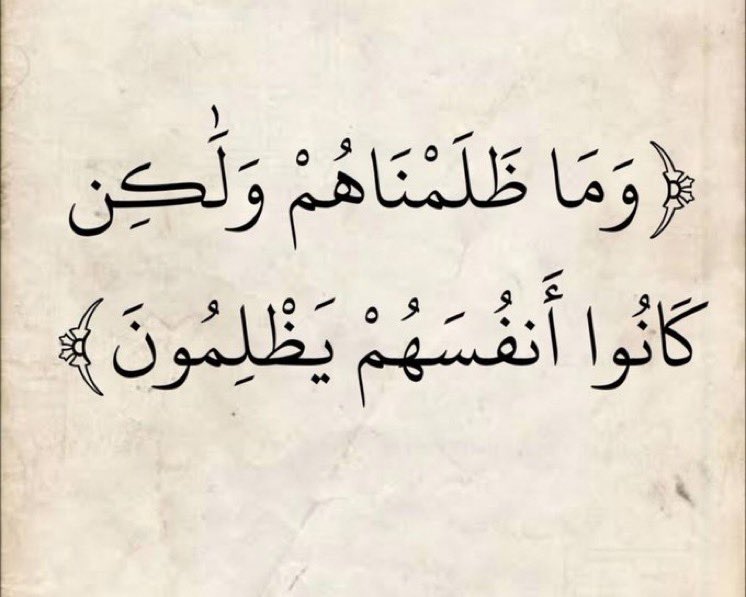 ﴿وَمَا ظَلَمْنَاهُمْ وَلَٰكِن
كَانُوا أَنفُسَهُمْ يَظْلِمُونَ﴾